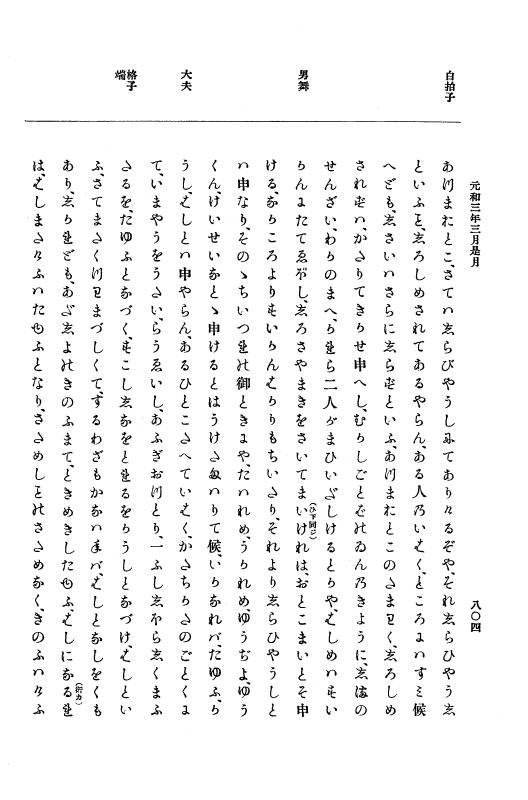 元和三年三月是月
八〇四
白拍子
あつまおとこ、さてハしらびやうしにてありけるぞや、それしらひやうし
といふを、しろしめされてあるやらん、ある人乃いはく、ところにハすミ候
へども、しさいハさらにしらずといふ、あつまおとこのたまわく、しろしめ
されずハ、かたりてきかせ申へし、むかしごとばのゐん乃きように、しまの
せんざい、わかのまへ、かれら二人がまひいだしけるとかや、はしめハすい
男舞
かんにたてゑぼし、しろさやまきをさいてまい(ひ下同ジ)けれは、おとこまいとそ申
ける、なかころよりすいかんはかりもちいたり、それよりしらひやうしと
ハ申なり、そのゝちいつれの御ときにや、たハれめ、うかれめ、ゆうぢよ、ゆう
くん、けいせいなとゝ申けるとはうけたまハりて候、いかなれバ、たゆふ、か
うし、はしとハ申やらん、あるひとこたへていはく、かたちかたのごとくに
大夫
て、いまやうをうたい、らうゑいし、あふぎおつとり、一ふししほらしくまふ
格子
端
たるを、たゆふとなづく、すこししなをとれるをかうしとなづけ、はしとい
ふ、さてまたくつわまづしくて、するわざもかなハねバ、はしとなしをくも
あり、しかれども、あだしよのきのふまて、ときめきしたゆふ、はしになるれ(衍カ)
は、はしまたけふハたゆふとなり、さためしをのさためなく、きのふハけふ